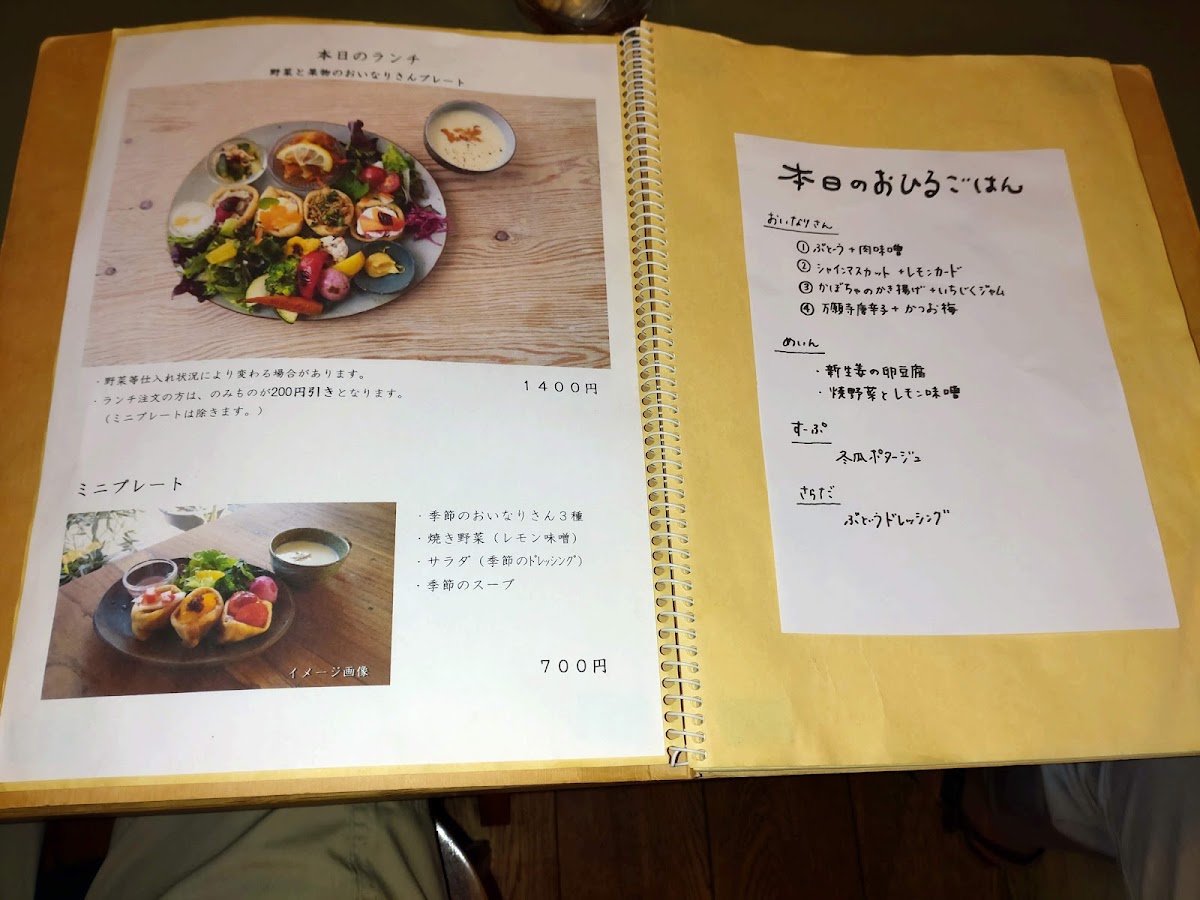 本日のランチ
野菜と果物のおいなりさんプレート
・野菜等仕入れ状況により変わる場合があります。
・ランチ注文の方は、のみものが200円引きとなります。
（ミニプレートは除きます。）
1400円
ミニプレート
・季節のおいなりさん3種
・焼き野菜（レモン味噌）
・サラダ（季節のドレッシング）
・季節のスープ
イメージ画像
700円
本日のおひるごはん
おいなりさん
① ぶどう+肉味噌
② シャインマスカット+レモンカード
③ かぼちゃのかき揚げ+いちじくジャム
④ 万願寺唐辛子+かつお梅
めいん
・新生姜の卵豆腐
・焼野菜とレモン味噌
すーぷ
冬瓜ポタージュ
さらだ
ぶどうドレッシング